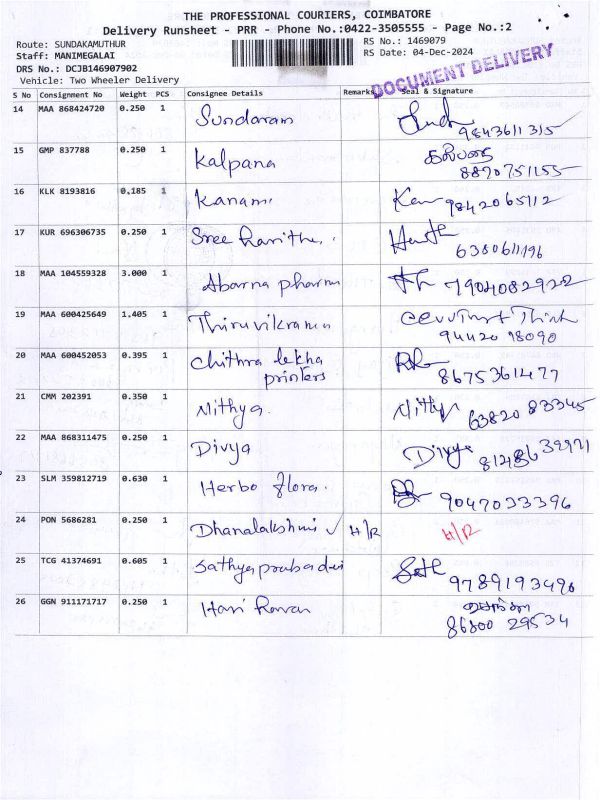 THE PROFESSIONAL COURIERS, COIMBATORE
Delivery Runsheet - PRR - Phone No.:0422-3505555 - Page No.:2
Route: SUNDAKAMUTHUR RS No.: 1469079
Staff: MANIMEGALAI RS Date: 04-Dec-2024
DRS No.: DCJB146907902
Vehicle: Two Wheeler Delivery
DOCUMENT DELIVERY
S No Consignment No Weight PCS Consignee Details Remarks Seal & Signature
14 MAA 868424720 0.250 1 Sundaram 9843611315
15 GMP 837788 0.250 1 Kalpana கல்பனா 8870751155
16 KLK 8193816 0,185 1 Kanami 9842065112
17 KUR 696306735 0.250 1 Sree 6380611196
18 MAA 104559328 3.000 1 Abarna pharma 7904082922
19 MAA 600425649 1.405 1 Thiruvikraman 94420 18090
20 MAA 600452053 0.395 1 Chithra lekha
printers 8675361477
21 CMM 202391 0.350 1 Nithya. Nithy 63820 83345
22 MAA 868311475 0.250 1 Divya Divya
23 SLM 359812719 0.630 1 Herbo flora. 9047033396
24 PON 5686281 0.250 1 Dhanalakshmi ✓ H/R H/R
25 TCG 41374691 0.605 1 Sathyaprabadevi 9789193496
26 GGN 911171717 0.250 1 Hari 86800 29534